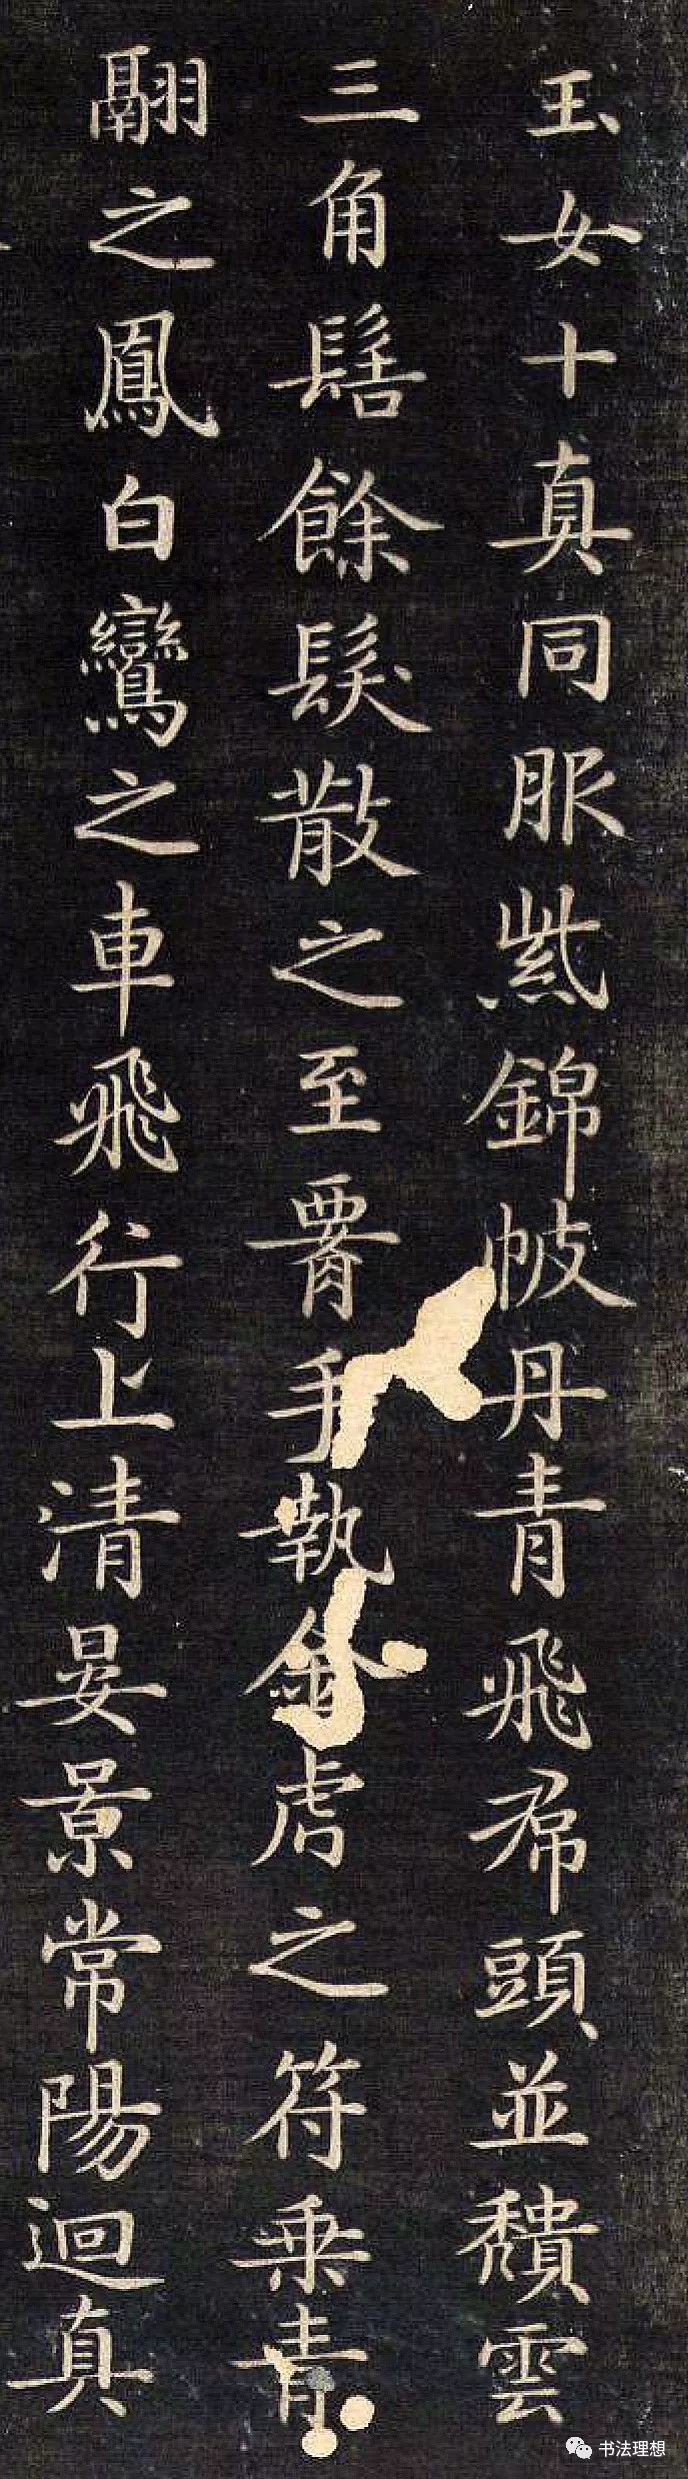 玉女十真同服紫錦帔丹青飛帬頭並穨雲
三角髻餘髮散之至𦝫手執金虎之符乗青
翮之鳳白鸞之車飛行上清晏景常陽迴真
书法理想